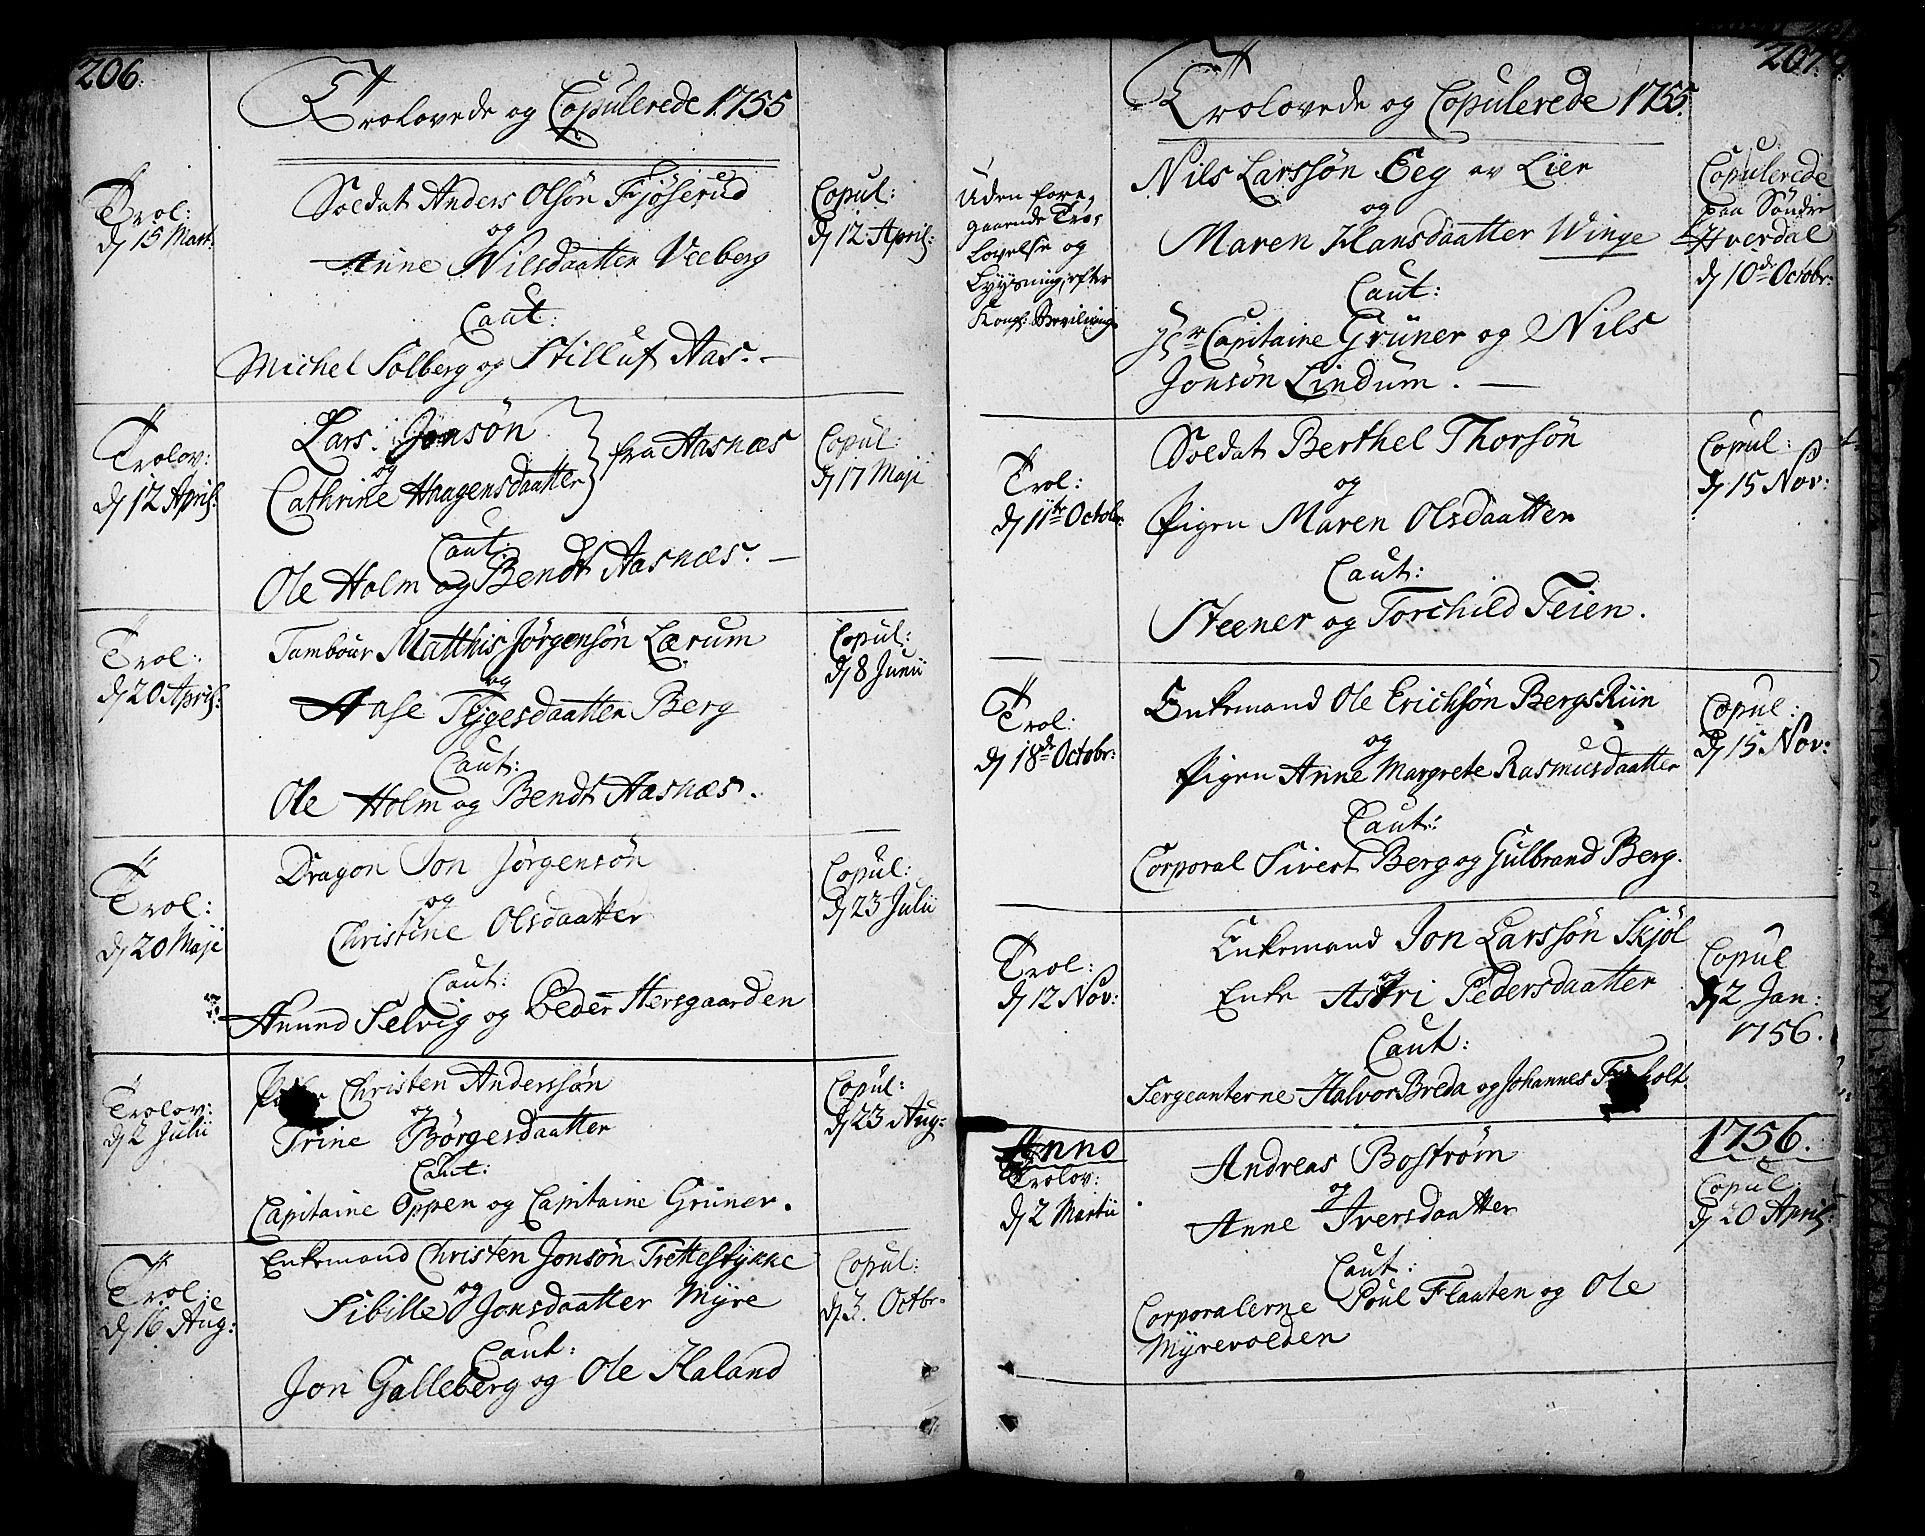 206.
Trolovede og Copulerede 1755
Trol:
d 15 Mart:
Soldat Anders Olsön Fjöserud
og
Anne Nilsdaatter Veeberg
Caut:
Michel Solberg og Stilluf Aas. —
Copul:
d 12 April:
Trolov:
d 12 April:
Lars Jonsön
og
Cathrine Haagensdaatter
fra Aasnæs
Caut
Ole Holm og Bendt Aasnæs. —
Copul:
d 17 Maji
Trol:
d 20 April:
Tambour Matthis Jörgensön Lærum
og
Aase Tygesdaatter Berg
Caut:
Ole Holm og Bendt Aasnæs.
Copul:
d 8 Junii
Trol:
d 20 Maji
Dragon Jon Jörgensön
og
Christine Olsdaatter
Caut:
Anund Selvig og Peder Hersgaarden
Copul:
d 23 Julii
Trolov:
d 2 Julii
Christen Anderssön
og
Trine Börgesdaatter
Caut:
Capitaine Oppen og Capitaine Grüner.
Copul:
d 23 Aug:
Trol:
d 16 Aug:
Enkemand Christen Jonsön Trettestykke
og
Sibille Jonsdaatter Myre
Caut:
Jon Galleberg og Ole Haland
Copul:
d 3. Octbr:
207.
Trolovede og Copulerede 1755.
Uden fore,
gaaende Tro,
lovelse og
Lysning, efter
Kongl: Bevilning
Nils Larssön Eeg av Lier
og
Maren Hansdaatter Winge
Caut:
Hr Capitaine Grüner og Nils
Jonsön Lindum. —
Copulerede
paa Söndre
Hverdal
d 10de Octobr:
Trol:
d 11te Octobr:
Soldat Berthel Thorsön
og
Pigen Maren Olsdaatter
Caut:
Steener og Torchild Teien.
Copul:
d 15 Nov:
Trol:
d 18de Octobr:
Enkemand Ole Erichsön Bergskiin
og
Pigen Anne Margrete Rasmusdaatter
Caut:
Corporal Sivert Berg og Gulbrand Berg.
Copul:
d 15 Nov:
Trol:
d 12 Nov:
Enkemand Jon Larssön Skjöl
og
Enke Astri Pedersdaatter
Caut:
Sergeanterne Halvor Breda og Johannes
Copul
d 2 Jan:
1756.
Anno
Trolov:
d 2 Martii
Andreas Boström
og
Anne Iversdaatter
Caut:
Corporalerne Poul Flaaten og Ole
Myrevolden
1756.
Copul:
d 20 April: